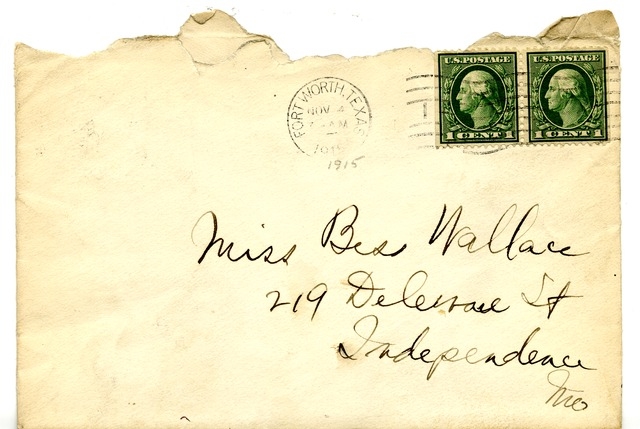 FORT WORTH, TEXAS
NOV 4
AM
1915
1915
U.S.POSTAGE
1 CENT 1
U.S.POSTAGE
1 CENT 1
Miss Bess Wallace
219 Deleware St
Independence
Mo